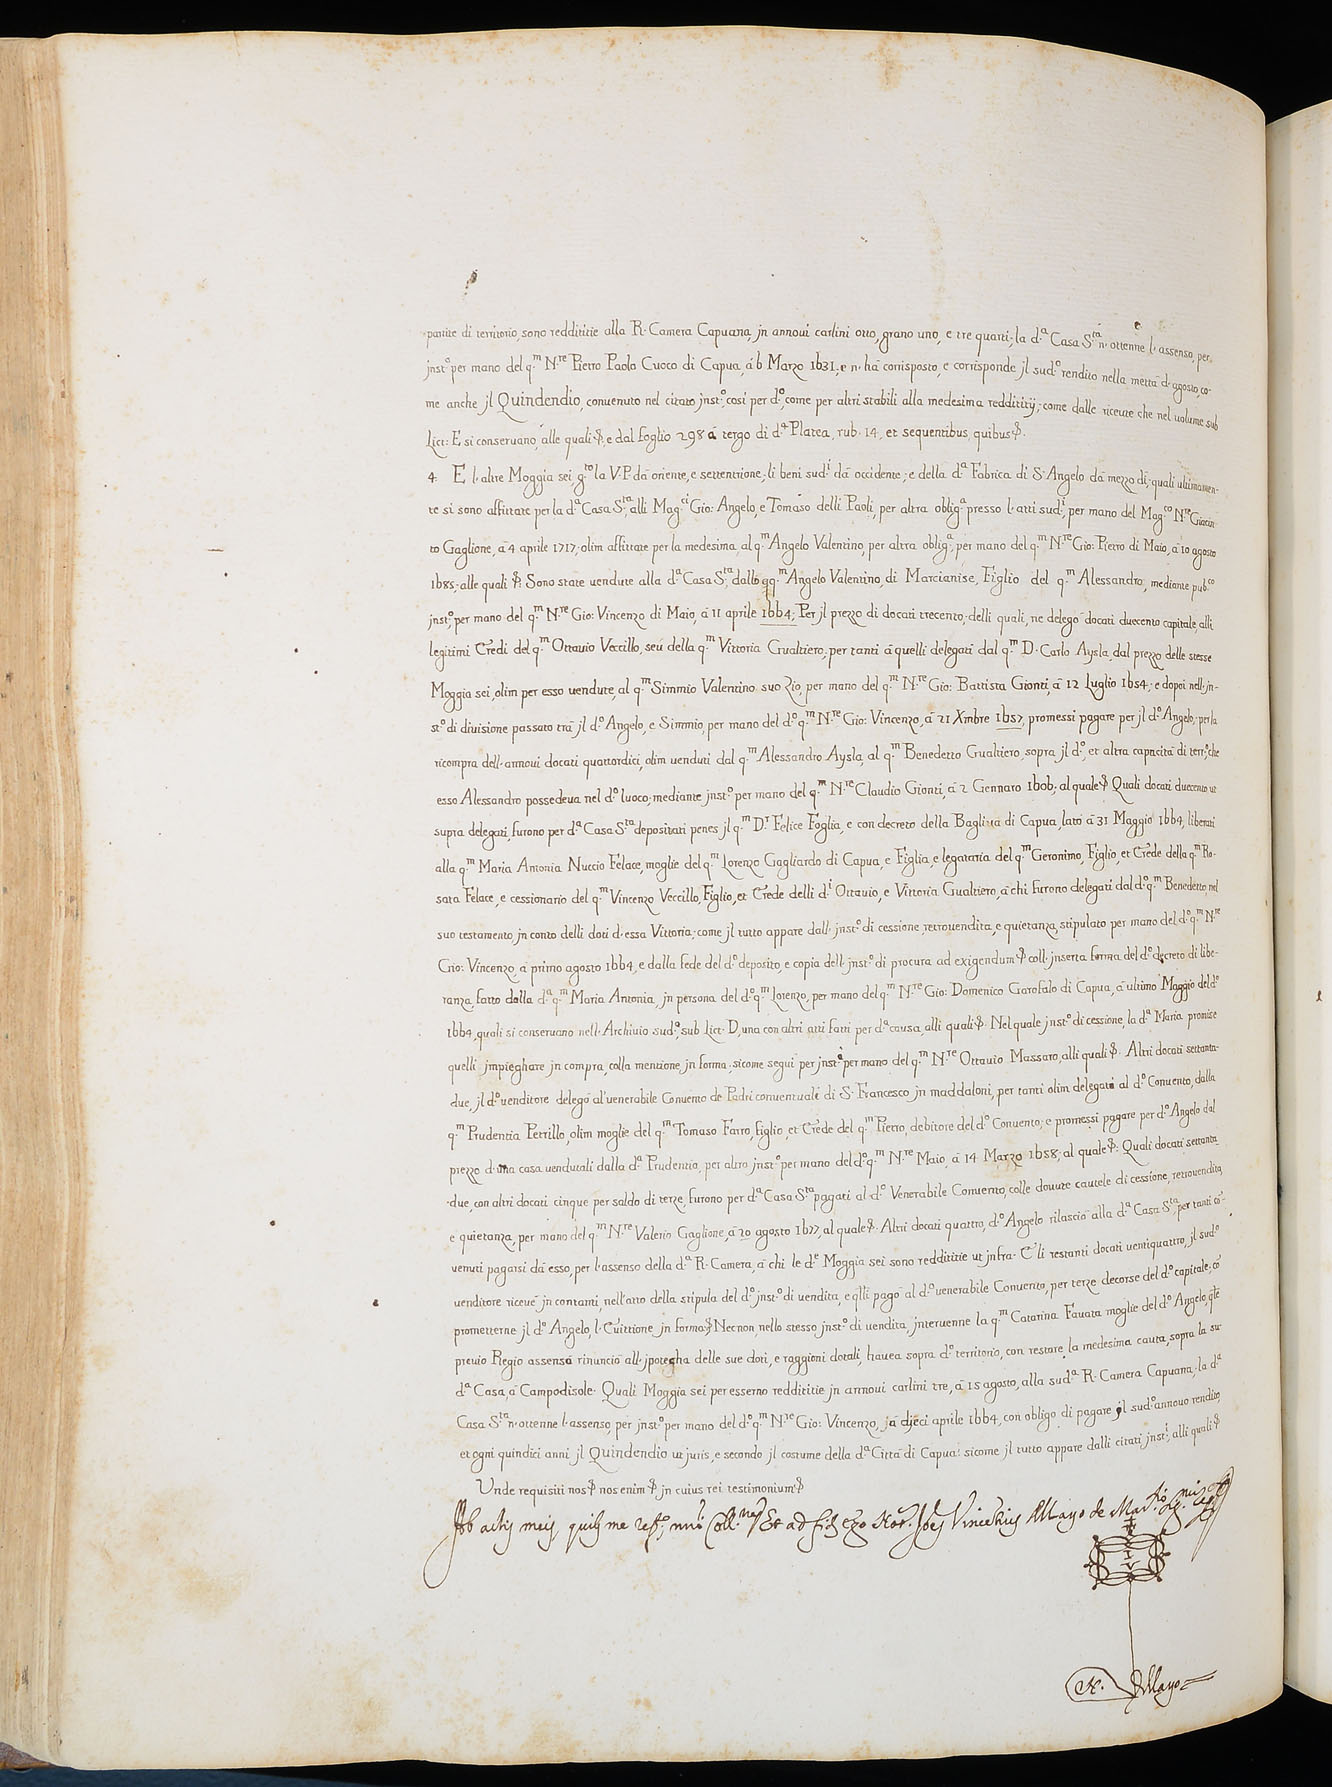 partite di territorio, sono redditizie alla R. Camera Capuana, jn annoui carlini otto, grano uno, e tre quarti; la d.ª Casa S.ta n. ottenne l. assenso, per
jnst.º per mano del q.m N.re Pietro Paolo Cuoco di Capua, á 6 Marzo 1631, e n. ha corrisposto, e corrisponde jl sud.º rendito nella mettá d. agosto, co-
me anche jl Quindendio, conuenuto nel citato jnst.º, così per d.º, come per altri stabili alla medesima reddititij; come dalle riceute che nel uolume sub
Lict: E si conseruano, alle quali &, e dal foglio 298 á tergo di d.ª Platea, rub. 14, et sequentibus, quibus &.
4. E l. altre Moggia sei, g.to la V. P. dá oriente, e settentrione; li beni sud.i dá occidente; e della d.ª Fabrica di S. Angelo dá mezzo dì; quali ultimamen-
te si sono affittate per la d.ª Casa S.ta, alli Mag.ci Gio: Angelo, e Tomaso delli Paoli, per altra oblig.ª presso l. atti sud.i, per mano del Mag.co N.re Giacin-
to Gaglione, á 4 aprile 1717; olim affittate per la medesima, al q.m Angelo Valentino, per altra oblig.ª, per mano del q.m N.re Gio: Pietro di Maio, á 10 agosto
1685; alle quali &. Sono state uendute alla d.ª Casa S.ta, dallo q.m Angelo Valentino, di Marcianise, Figlio del q.m Alessandro, mediante pub.co
jnst.º, per mano del q.m N.re Gio: Vincenzo di Maio, á 11 aprile 1664; Per jl prezzo di docati trecento; delli quali, ne delegò docati duecento capitale, alli
legitimi Eredi del q.m Ottauio Veccillo, seù della q.m Vittoria Gualtiero, per tanti á quelli delegati dal q.m D. Carlo Aysla, dal prezzo delle stesse
Moggia sei, olim per esso uendute, al q.m Simmio Valentino suo Zio, per mano del q.m N.re Gio: Battista Gionti, á 12 Luglio 1654; e dopoi nell. jn-
st.º di diuisione passato trá jl d.º Angelo, e Simmio, per mano del d.º q.m N.re Gio: Vincenzo, á 21 Xmbre 1657, promessi pagare per jl d.º Angelo; per la
ricompra dell. annoui docati quattordici, olim uenduti dal q.m Alessandro Aysla, al q.m Benedetto Gualtiero, sopra jl d.º, et altra capacitá di terr.º, che
esso Alessandro possedeua nel d.º luoco; mediante jnst.º per mano del q.m N.re Claudio Gionti, á 2 Gennaro 1606; al quale & Quali docati duecento ut
supra delegati, furono per d.ª Casa S.ta depositati penes jl q.m D.r Felice Foglia, e con decreto della Bagliua di Capua, lato á 31 Maggio 1664, liberati
alla q.m Maria Antonia Nuccio Felace, moglie del q.m Lorenzo Gagliardo di Capua, e Figlia, e legataria del q.m Geronimo, Figlio, et Erede della q.m Ro-
sata Felace, e cessionario del q.m Vincenzo Veccillo, Figlio, et Erede delli d.i Ottauio, e Vittoria Gualtiero, á chi furono delegati dal d.º q.m Benedetto, nel
suo testamento, jn conto delli doti d. essa Vittoria; come jl tutto appare dall. jnst.º di cessione, retrouendita, e quietanza, stipulato per mano del d.º q.m N.re
Gio: Vincenzo, á primo agosto 1664, e dalla fede del d.º deposito, e copia dell. jnst.º di procura ad exigendum & coll. jnserta forma del d.º decreto di libe-
ranza, fatto dalla d.ª q.m Maria Antonia, jn persona del d.º q.m Lorenzo, per mano del q.m N.re Gio: Domenico Garofalo di Capua, á ultimo Maggio del d.º
1664, quali si conseruano nell. Archiuio sud.º, sub Lict. D, una con altri atti fatti per d.ª causa, alli quali &. Nel quale jnst.º di cessione, la d.ª Maria promise
quelli jmpieghare jn compra, colla mentione jn forma, sicome seguì per jnst.º per mano del q.m N.re Ottauio Massaro, alli quali &. Altri docati settanta-
due, jl d.º uenditore delegò al'uenerabile Conuento de Padri conuentuali di S. Francesco jn maddaloni, per tanti olim delegati al d.º Conuento, dalla
q.m Prudentia Petrillo, olim moglie del q.m Tomaso Farro, Figlio, et Erede del q.m Pietro, debitore del d.º Conuento; e promessi pagare per d.º Angelo dal
prezzo d. una casa uendutali dalla d.ª Prudentia, per altro jnst.º per mano del d.º q.m N.re Maio, á 14 Marzo 1658; al quale &: Quali docati settanta-
due, con altri docati cinque per saldo di terze, furono per d.ª Casa S.ta pagati al d.º Venerabile Conuento, colle douute cautele di cessione, retrouendita,
e quietanza, per mano del q.m N.re Valerio Gaglione, á 20 agosto 1677, al quale &. Altri docati quattro, d.º Angelo rilasciò alla d.ª Casa S.ta, per tanti có-
uenuti pagarsi dá esso, per l. assenso della d.ª R. Camera, á chi le d.e Moggia sei sono redditizie ut jnfra. E li restanti docati uentiquattro, jl sud.º
uenditore riceué jn contanti, nell'atto della stipula del d.º jnst.º di uendita, e q̃lli pagò al d.º uenerabile Conuento, per terze decorse del d.º capitale; có
prometterne jl d.º Angelo, l. Euittione jn forma & Necnon, nello stesso jnst.º di uendita, jnteruenne la q.m Catarina Fauata moglie del d.º Angelo, q̃le
preuio Regio assenso rinunciò all. jpotegha delle sue doti, e raggioni dotali, hauea sopra d.º territorio, con restare la medesima cauta, sopra la su
d.ª Casa, á Campodisole. Quali Moggia sei per esserno redditizie jn annoui carlini tre, á 15 agosto, alla sud.ª R. Camera Capuana; la d.ª
Casa S.ta n. ottenne l. assenso, per jnst.º per mano del d.º q.m N.re Gio: Vincenzo, já djeci aprile 1664, con obligo di pagare jl sud.º annouo rendito,
et ogni quindici anni jl Quindendio ut juris, e secondo jl costume della d.ª Cittá di Capua: sicome jl tutto appare dalli citati jnst.i, alli quali &
Unde requisiti nos & nos enim & jn cuius rei testimonium &
Ab actis meis, quib9 me refero, Et ad fidem ego Not.s Joes Vincentius de Mayo de
N. de Mayo